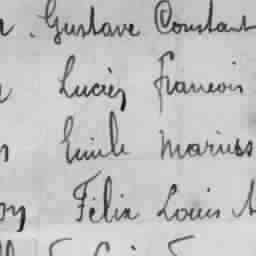 Gustave Constant
Lucien francois
Emile Marius
Félix Louis